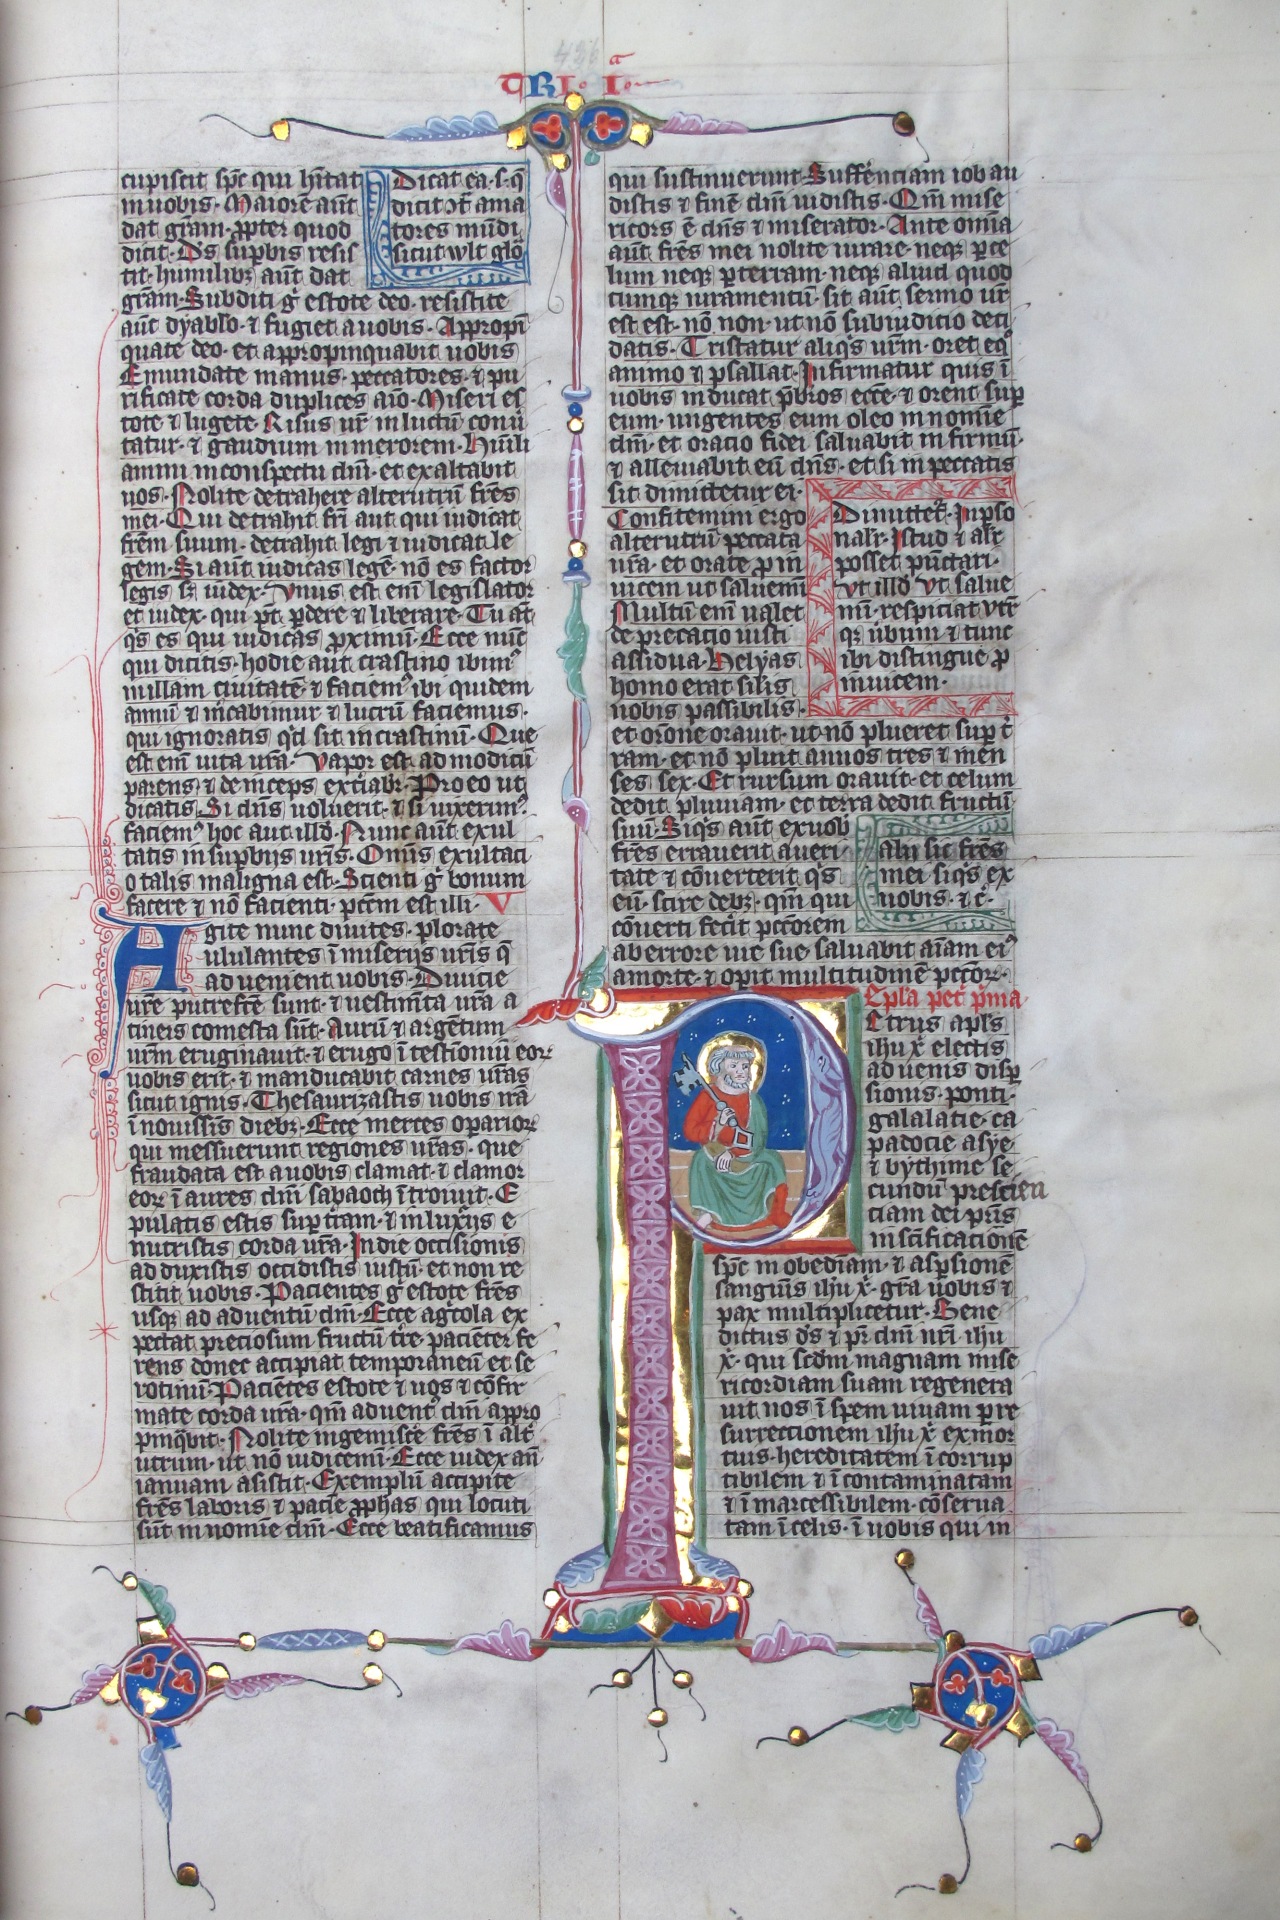 436
TRI. I.a
cupiscit sp̄c qui hītat
in uobis. Maiorē aūt
dat grām. ꝓpter quod
dicit. Ds̄ suꝑbis resis
tit. humilibꝫ aūt dat
grām. Subditi g̊ estote deo. resistite
aūt dyabło. ⁊ fugiet a uobis. Appropī
quate deo. et appropinquabit uobis
Emundate manus. peccatores. ⁊ pu
rificate corda duplices aīo. Miseri es
tote ⁊ lugete. Risus ur̄ in luctū conū
tatur. ⁊ gaudium in merorem. Humili
amini in conspectu dn̄i. et exaltabit
uos. Nolite detrahere alterutrū fr̄es
mei. Qui detrahit fr̄i aut qui iudicat
fr̄em suum. detrahit legi ⁊ iudicat le
gem. Si aūt iudicas legē. nō es factor
legis sꝫ iudex. Vnus est enī legislator
et iudex. qui pt̄ ꝑdere ⁊ liberare. Tu aūt
q̄s es qui iudicas ꝓximū. Ecce nūc
qui dicitis. hodie aut crastino ibimꝰ
in illam ciuitatē. ⁊ faciemꝰ ibi quidem
annū ⁊ m̄cabimur ⁊ lucrū faciemus.
qui ignoratis qd̄ sit in crastinū. Que
est enī uita ur̄a. Vapor est ad modicū
parens. ⁊ deinceps ext̄iabr̄. Pro eo ut
dicatis. Si dn̄s uoluerit. ⁊ si uixerimꝰ.
faciemꝰ hoc aut illd̄. Nunc aūt exul
tatis in suꝑbijs ur̄is. Omīs exultaci
o talis maligna est. Scienti g̊ bonum
facere ⁊ nō facienti. pctm̄ est illi. V
Agite nunc diuites. plorate
ululantes ī miserijs ur̄is q̄
aduenient uobis. Diuicie
ur̄e putrefcē sunt. ⁊ uestimīta ur̄a a
tineis comesta sūt. Aurū ⁊ argētum
ur̄m eruginauit. ⁊ erugo ī testīoniū eorꝫ
uobis erit. ⁊ manducabit carnes ur̄as
sicut ignis. Thesaurizastis uobis irā
ī nouissīs diebꝫ. Ecce merces operiorꝫ
qui messuerunt regiones ur̄as. que
fraudata est a uobis clamat. ⁊ clamor
eorꝫ ī aures dn̄i sabaoth ītroiuit. E
pulatis estis suꝑ t̄ram. ⁊ in luxꝰijs e
nutristis corda ur̄a. In die occisionis
adduxistis occidistis iustū. et non re
stitit uobis. Pacientes g̊ estote fr̄es
usqꝫ ad aduentū dn̄i. Ecce ag̊cola ex
pectat preciosum fructū t̄re. paciēter fe
rens donec accipiat temporaneū et se
rotinū. Paciētes estote ⁊ uos ⁊ cōfir
mate corda ur̄a. qm̄ aduentꝰ dn̄i appro
pinq̄bit. Nolite ingemisc̄e fr̄es ī alt̄
utrum. ut nō iudicemī. Ecce iudex an̄
ianuam assistit. Exemplū accipite
fr̄es laboris ⁊ pacīe ꝓphas qui locuti
sūt in nomīe dn̄i. Ecce beatificamus
Dicat ea. s. q̄
dicit ꝯt̄ ama
tores mūdi
sicut wlt glō
qui sustinuerunt. Suffrēciam iob au
distis ⁊ finē dn̄i uidistis. Qm̄ mise
ricors ē dn̄s ⁊ miserator. Ante omīa
aūt fr̄es mei nolite iurare. neqꝫ ꝑ ce
lum neqꝫ ꝑ terram. neqꝫ aliud quod
cumqꝫ iuramentū. sit aūt sermo ur̄
est est. nō non. ut nō sub iudicio deci
datis. Tristatur aliq̄s ur̄m. oret eq̊
animo ⁊ psallat. Infirmatur quis ī
uobis inducat p̄bros ecc̄e. ⁊ orent suꝑ
eum. ungentes eum oleo in nomīe
dn̄i. et oracio fidei saluabit infirmū.
⁊ alleuiabit eū dn̄s. et si in peccatis
sit dimittetur ei.
Confitemini ergo
alterutrū peccata
ur̄a. et orate ꝓ in
uicem ut saluemī
Multū enī ualet
deprecacio iusti
assidua. Helyas
homo erat siīlis
nobis passibilis.
et orōne orauit. ut nō plueret suꝑ t̄
ram. et nō pluit annos tres ⁊ men
ses sex. Et rursum orauit. et celum
dedit pluuiam. et terra dedit fructū
suū. Siq̄s aūt ex uob
fr̄es errauerit a ueri
tate ⁊ cōuerterit q̄s
eū. scire debꝫ. qm̄ qui
cōuerti fec̄it pctōrem
ab errore uie sue saluabit aīam eiꝰ
a morte. ⁊ opit multitudinē pctōrꝫ.
Dimittet̄. Inꝑso
nalr̄. Istud ⁊ alr̄
posset pūctari.
vt illd̄ vt salue
mī. respiciat vtr̄
qꝫ ūbum ⁊ tunc
ibi distingue ꝓ
inuicem.
alii sic fr̄es
mei siq̄s ex
uobis. ⁊ c̄.
Epl̄a pet̄ p̄ma
Etrus apl̄s
ihu xͥ electis
aduenis disꝑ
sionis. ponti.
galalatie. ca
padocie asye.
⁊ bythinie se
cundū prescien
ciam dei pr̄is
in sc̄ificationē
sp̄c in obediam. ⁊ asꝑsionē
sanguīs ihu xͥ. gr̄a uobis ⁊
pax multiplicetur. Bene
dictus ds̄ ⁊ pr̄ dn̄i nr̄i ihu
xͥ. qui scd̄m magnam mise
ricordiam suam regenera
uit nos ī sp̄em uiuam ꝑ re
surrectionem ihu xͥ ex mor
tuis. hereditatem ī corrup
tibilem ⁊ ī contaminatam
⁊ ī marcessibilem. cōserua
tam ī celis. ī uobis qui in